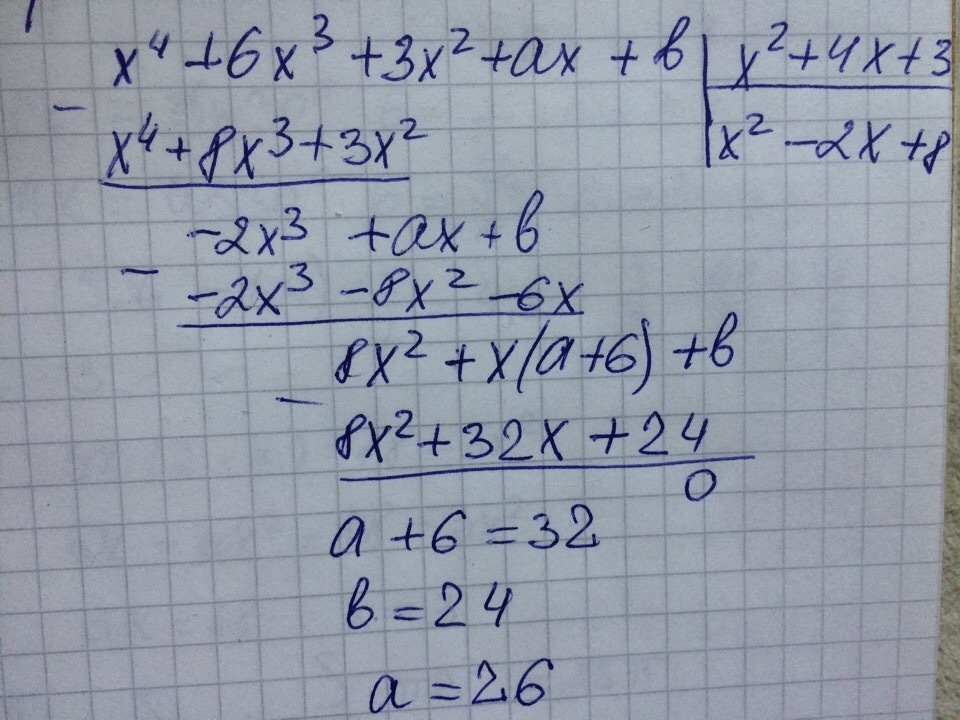 x⁴ + 6x³ + 3x² + ax + b | x² + 4x + 3
− x⁴ + 8x³ + 3x² | x² − 2x + 8
−2x³ + ax + b
− −2x³ − 8x² − 6x
8x² + x(a+6) + b
− 8x² + 32x + 24
0
a + 6 = 32
b = 24
a = 26